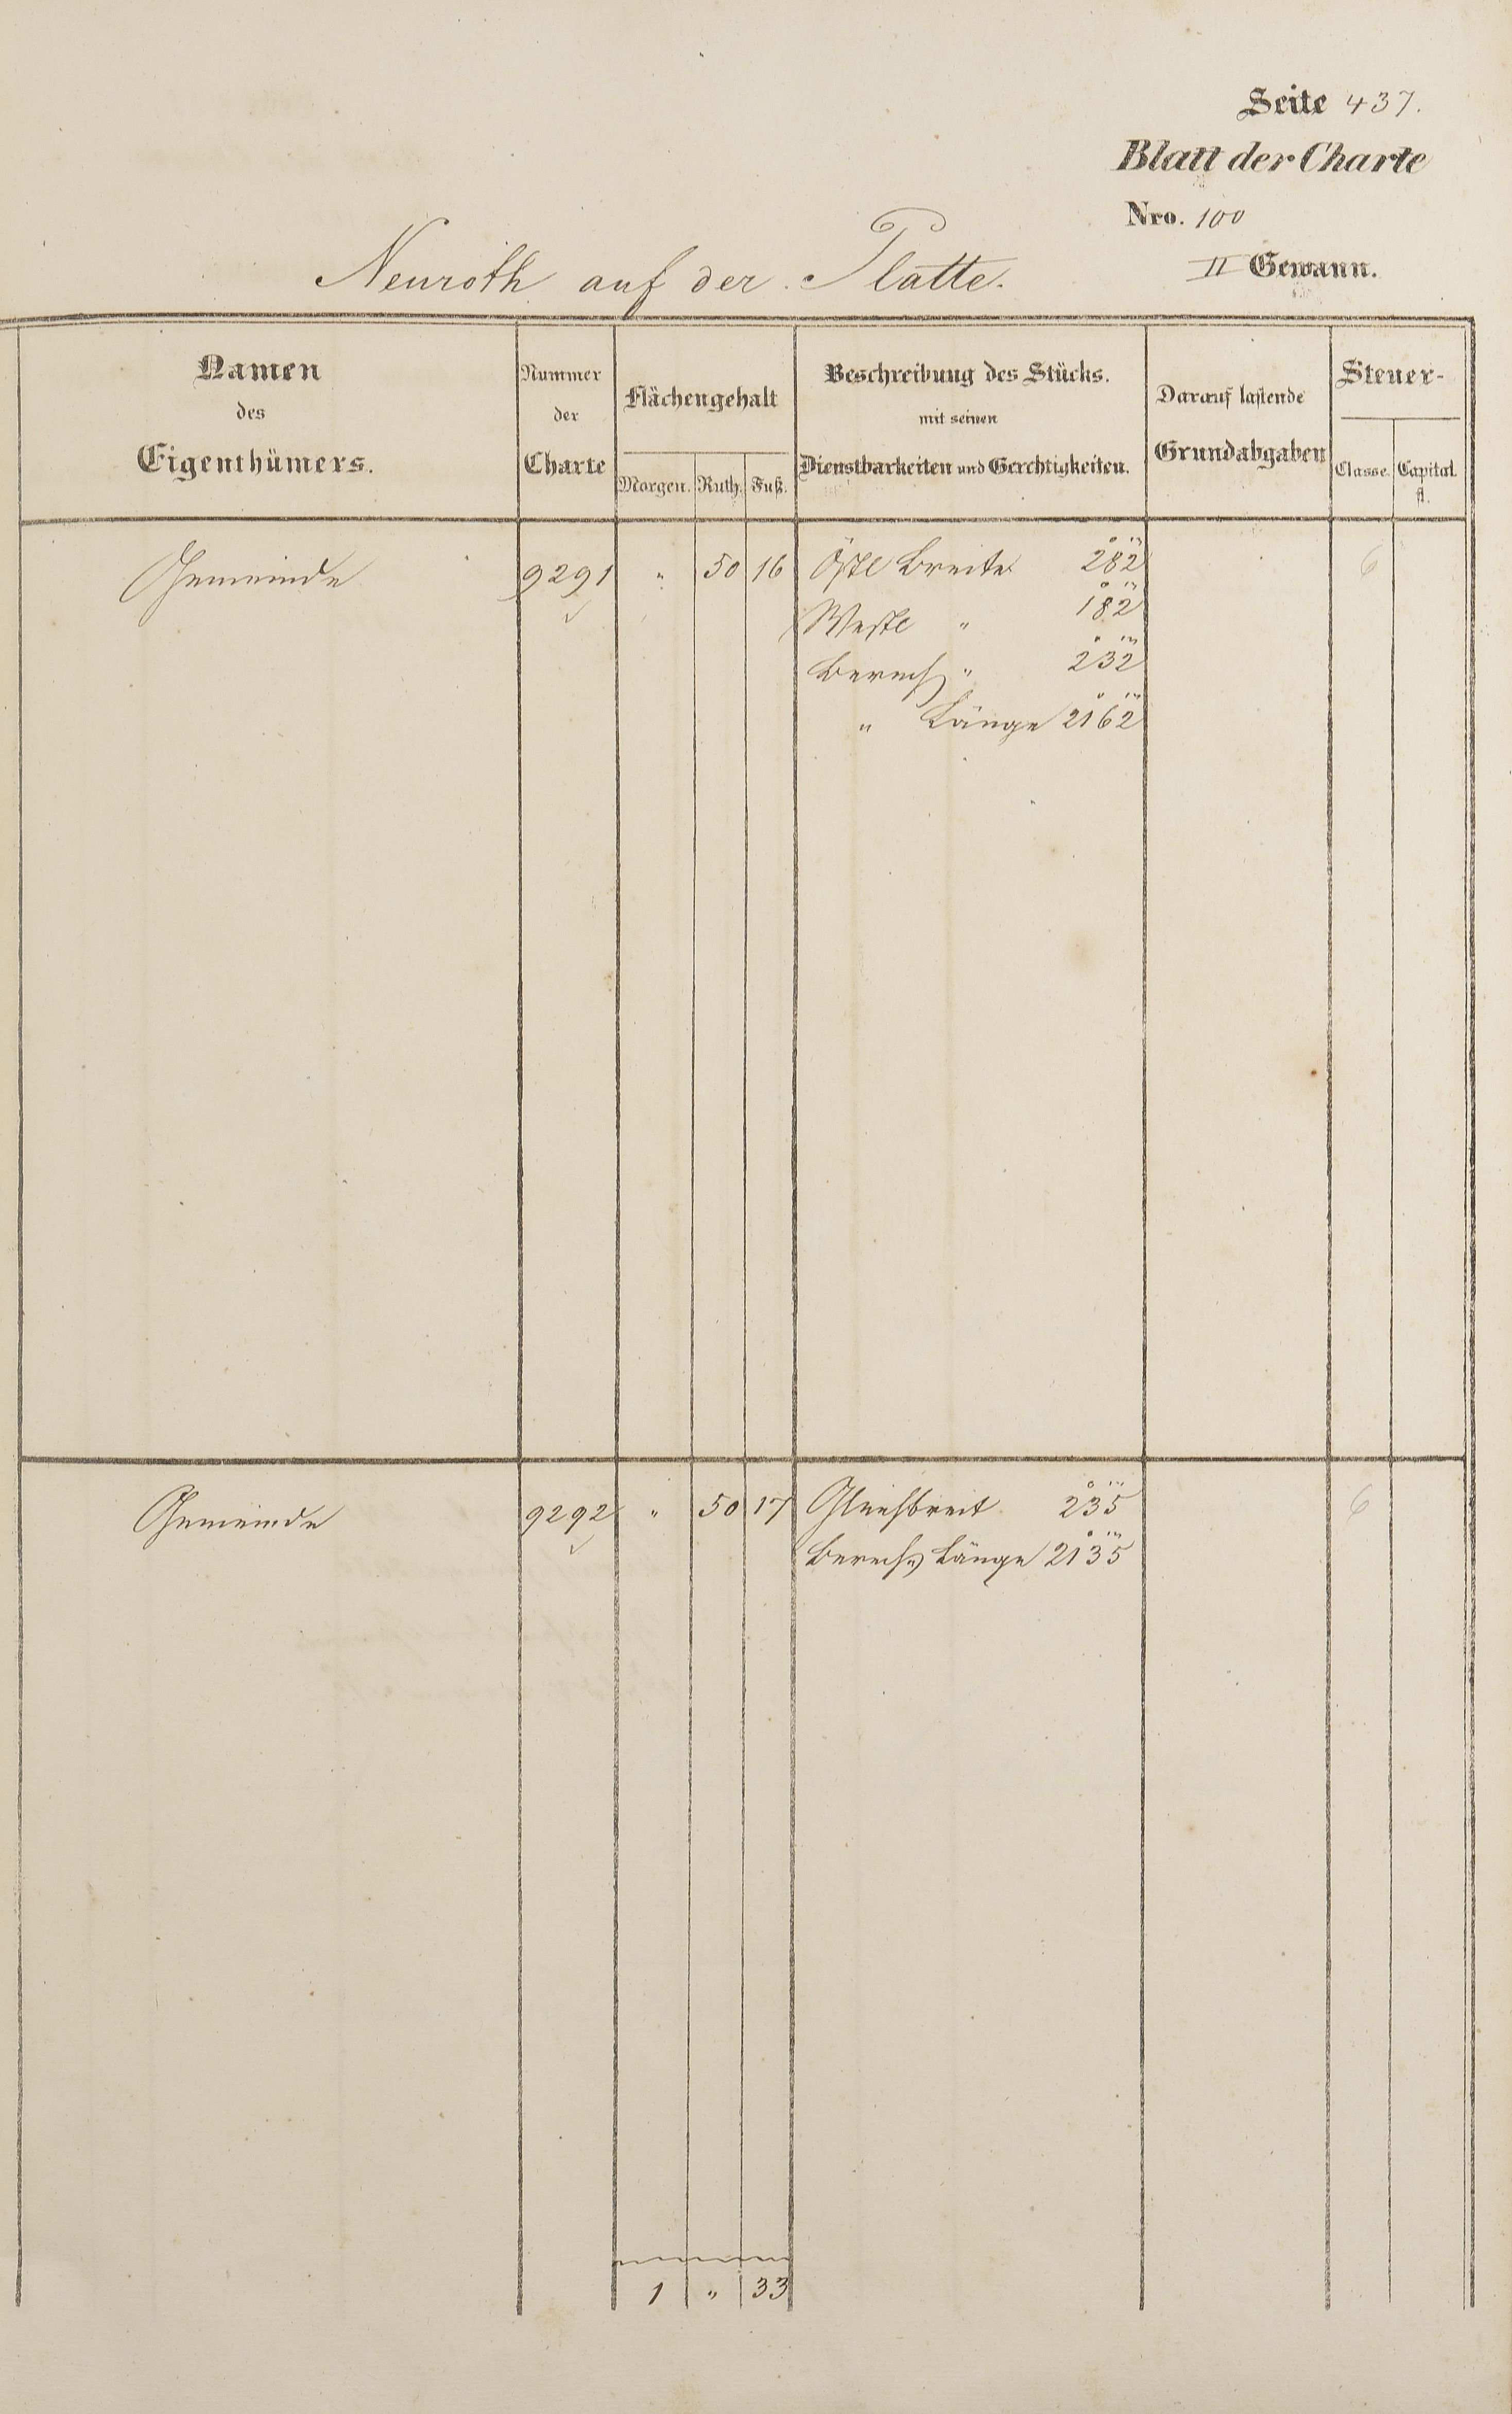 Seite 437.
Blatt der Charte
Nro. 100
II Gewann.
Neuroth auf der Platte.
Namen des Eigenthümers.
Nummer der Charte
Flächengehalt
Morgen. Ruth. Fuß.
Beschreibung des Stücks.
mit seinen
Dienstbarkeiten und Gerechtigkeiten.
Darauf lastende
Grundabgaben
Steuer-
Classe. Capital.
fl.
Gemeinde 9291 " 50 16 Östl Breite 282 6
Westl " 182
Berech " 232
" Länge 2162
Gemeinde 9292 " 50 17 Gleichbreit 235 6
Berech Länge 2135
1 " 33